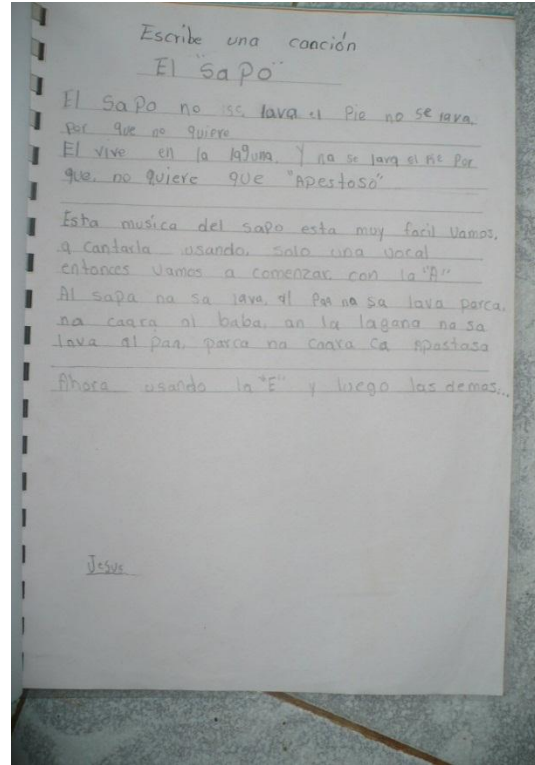 Escribe una canción
El "Sapo"
El Sapo no se lava el Pie no se lava
Por que no quiere
El vive en la laguna. Y no se lava el Pie Por
que, no quiere que "Apestoso"
Esta musica del sapo esta muy facil Vamos,
a cantarla usando, solo una vocal
entonces vamos a comenzar con la "A"
Al sapa na sa lava, al Paa na sa lava parca,
na caara al baba, an la lagana na sa
lava al paa, parca na caara ca Apastasa
Ahora usando la "E" y luego las demas...
Jesus